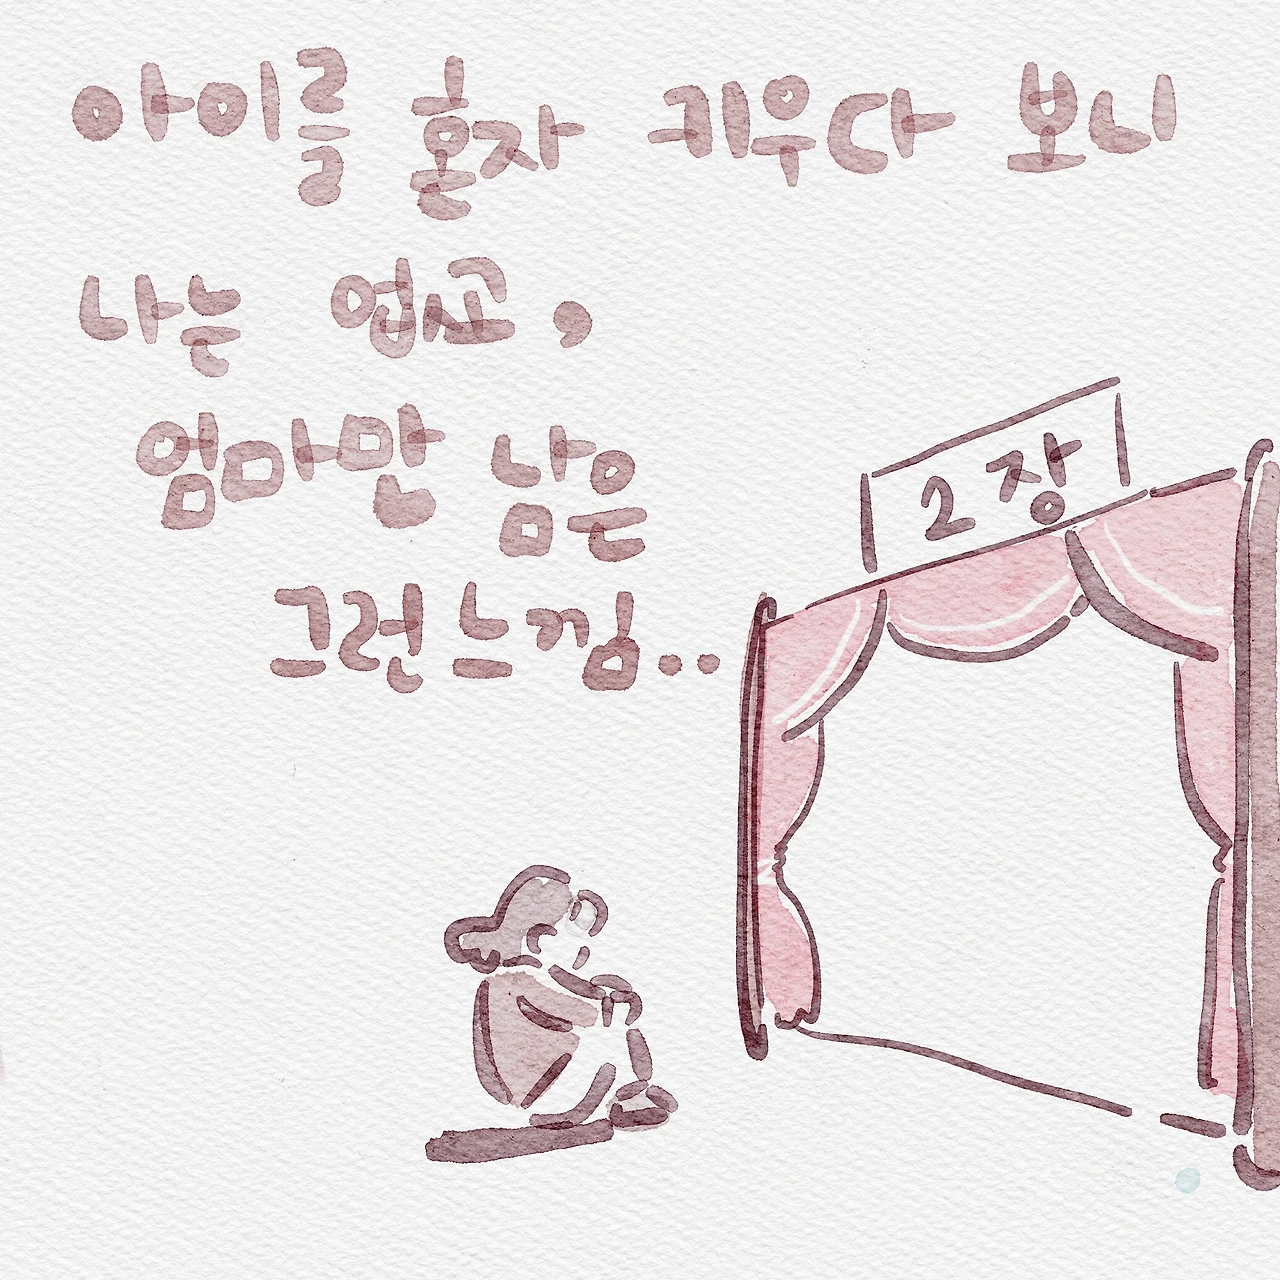 아이를 혼자 키우다 보니
나는 없고,
엄마만 남은
그런 느낌..
2장